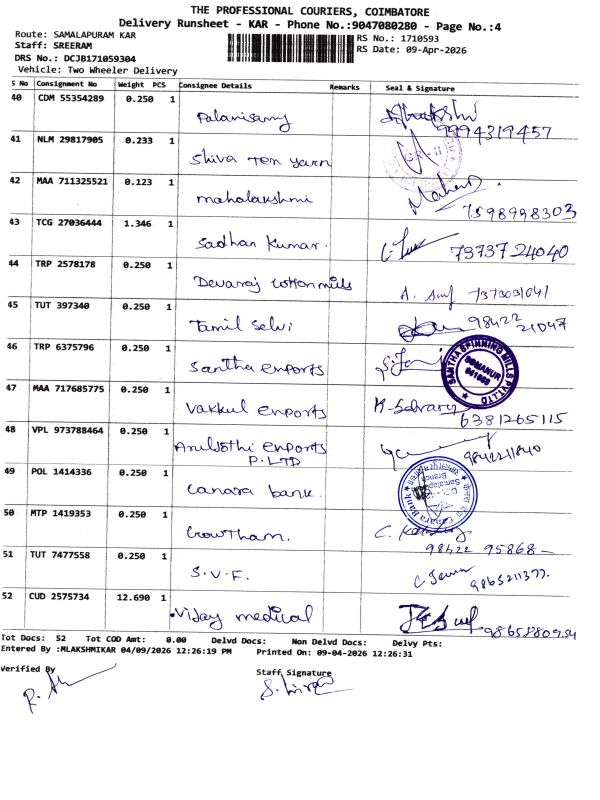 THE PROFESSIONAL COURIERS, COIMBATORE
Delivery Runsheet - KAR - Phone No.:9047080280 - Page No.:4
Route: SAMALAPURAM KAR
RS No.: 1710593
Staff: SREERAM
RS Date: 09-Apr-2026
DRS No.: DCJB171059304
Vehicle: Two Wheeler Delivery
S No Consignment No Weight PCS Consignee Details Remarks Seal & Signature
40 CDM 55354289 0.250 1
Palanisamy 9994319457
41 NLM 29817905 0.233 1
Shiva Tex yarn
42 MAA 711325521 0.123 1
mahalakshmi 7598998303
43 TCG 27036444 1.346 1
Sadhan Kumar. 73737 24040
44 TRP 2578178 0.250 1
Devaraj cottonmills
45 TUT 397340 0.250 1
Tamil Selvi 98422 21047
46 TRP 6375796 0.250 1
Santha exports
SANTHA SPINNING MILLS PVT LTD
SOMANUR
47 MAA 717685775 0.250 1
Vakkul exports 6381265115
48 VPL 973788464 0.250 1
Aruljothi exports
P.LTD
49 POL 1414336 0.250 1
Canara bank.
Canara Bank
50 MTP 1419353 0.250 1
Gowtham.
98422 95868
51 TUT 7477558 0.250 1
S.V.F.
52 CUD 2575734 12.690 1
Vijay medical
Tot Docs: 52 Tot COD Amt: 0.00 Delvd Docs: Non Delvd Docs: Delvy Pts:
Entered By :MLAKSHMIKAR 04/09/2026 12:26:19 PM Printed On: 09-04-2026 12:26:31
Verified By
Staff Signature